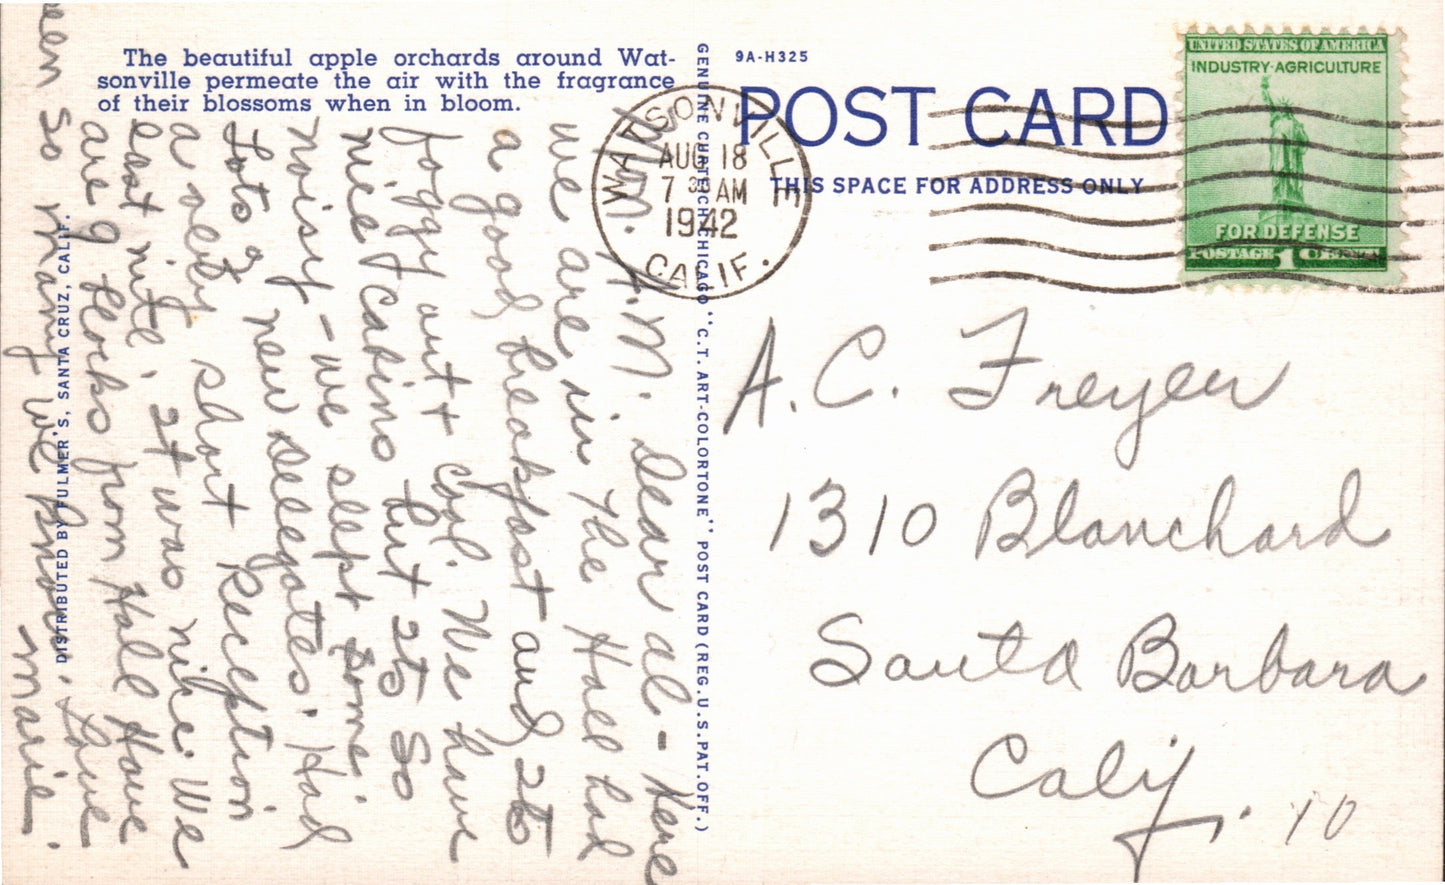 The beautiful apple orchards around Wat-
sonville permeate the air with the fragrance
of their blossoms when in bloom.
9A-H325
POST CARD
THIS SPACE FOR ADDRESS ONLY
UNITED STATES OF AMERICA
INDUSTRY-AGRICULTURE
FOR DEFENSE
POSTAGE 1 CENT
WATSONVILLE
AUG 18
7 30 AM
1942
CALIF.
A.M. Dear Al - Here
we are in the Hall had
a good breakfast and its
foggy out & cool. We have
nice cabins but its so
noisy - we slept some
Lots of new delegates. Had
a short reception
last nite, It was nice. We
are 9 blocks from Hall Have
seen so many we know. Love
Marie.
GENUINE CURTEICH-CHICAGO "C.T. ART-COLORTONE" POST CARD (REG. U.S. PAT. OFF.)
DISTRIBUTED BY FULMER'S, SANTA CRUZ, CALIF.
A. C. Freyer
1310 Blanchard
Santa Barbara
Calif.
10